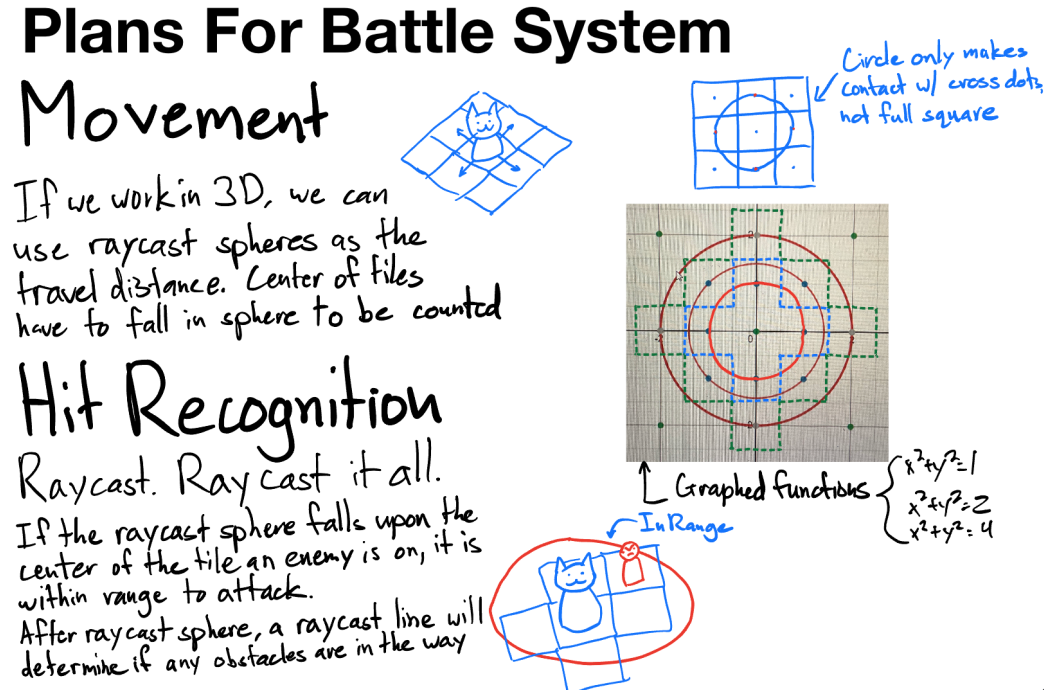 Plans For Battle System
Movement
If we work in 3D, we can
use raycast spheres as the
travel distance. Center of tiles
have to fall in sphere to be counted
Circle only makes
contact w/ cross dots,
not full square
2
-2
0
2
-2
Graphed functions
x²+y²=1
x²+y²=2
x²+y²=4
Hit Recognition
Raycast. Ray cast it all.
If the raycast sphere falls upon the
center of the tile an enemy is on, it is
within range to attack.
After raycast sphere, a raycast line will
determine if any obstacles are in the way
In Range